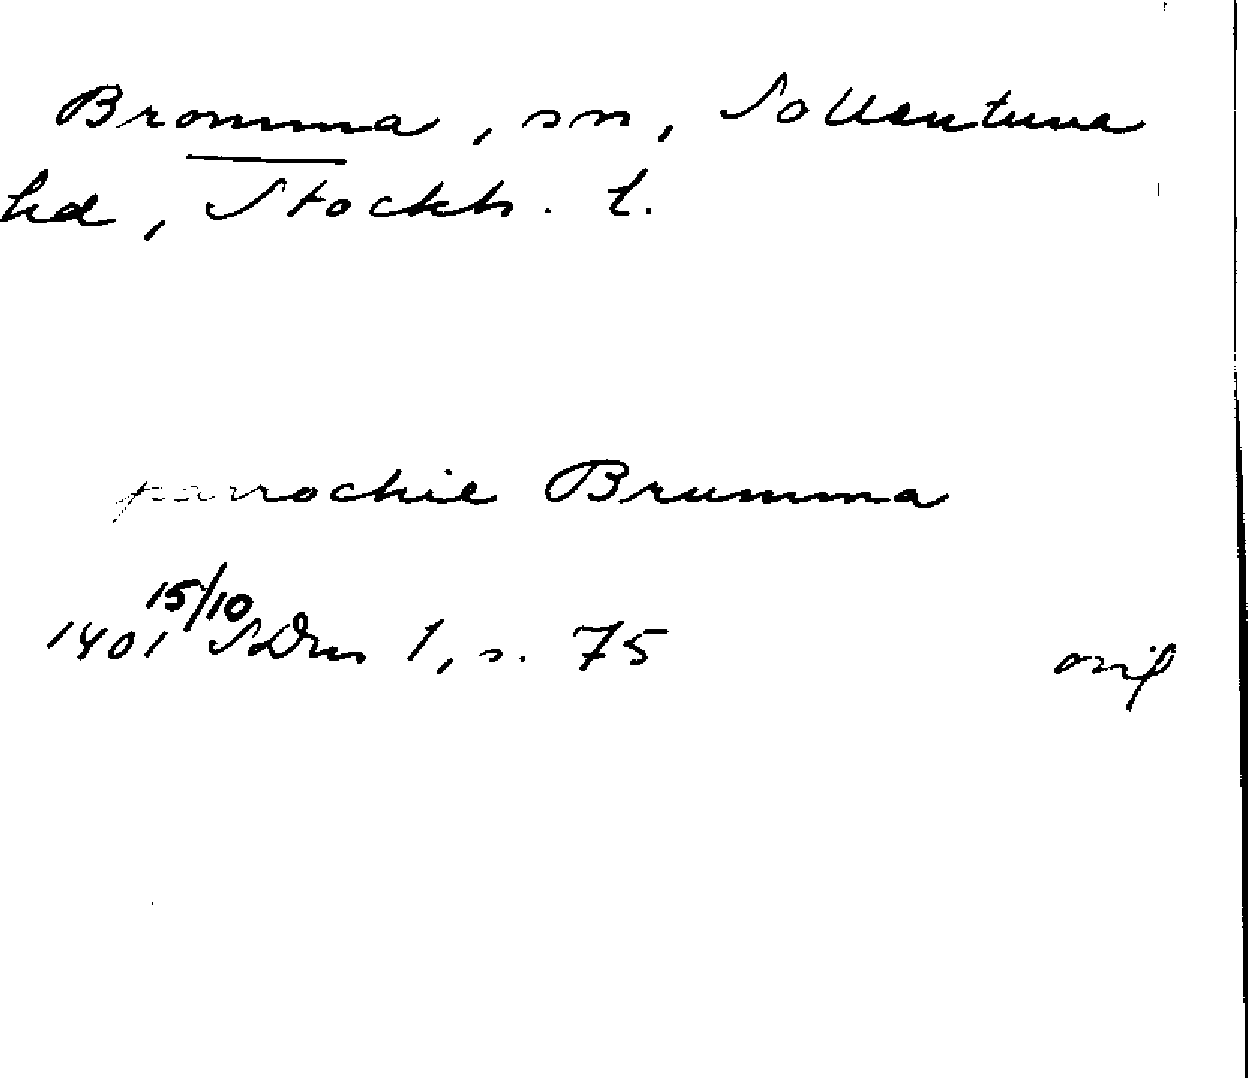 Bromma, sn, Sollentuna
hd, Stockh. l.
parrochie Brumma
1401 15/10 SDns 1, s. 75 orig